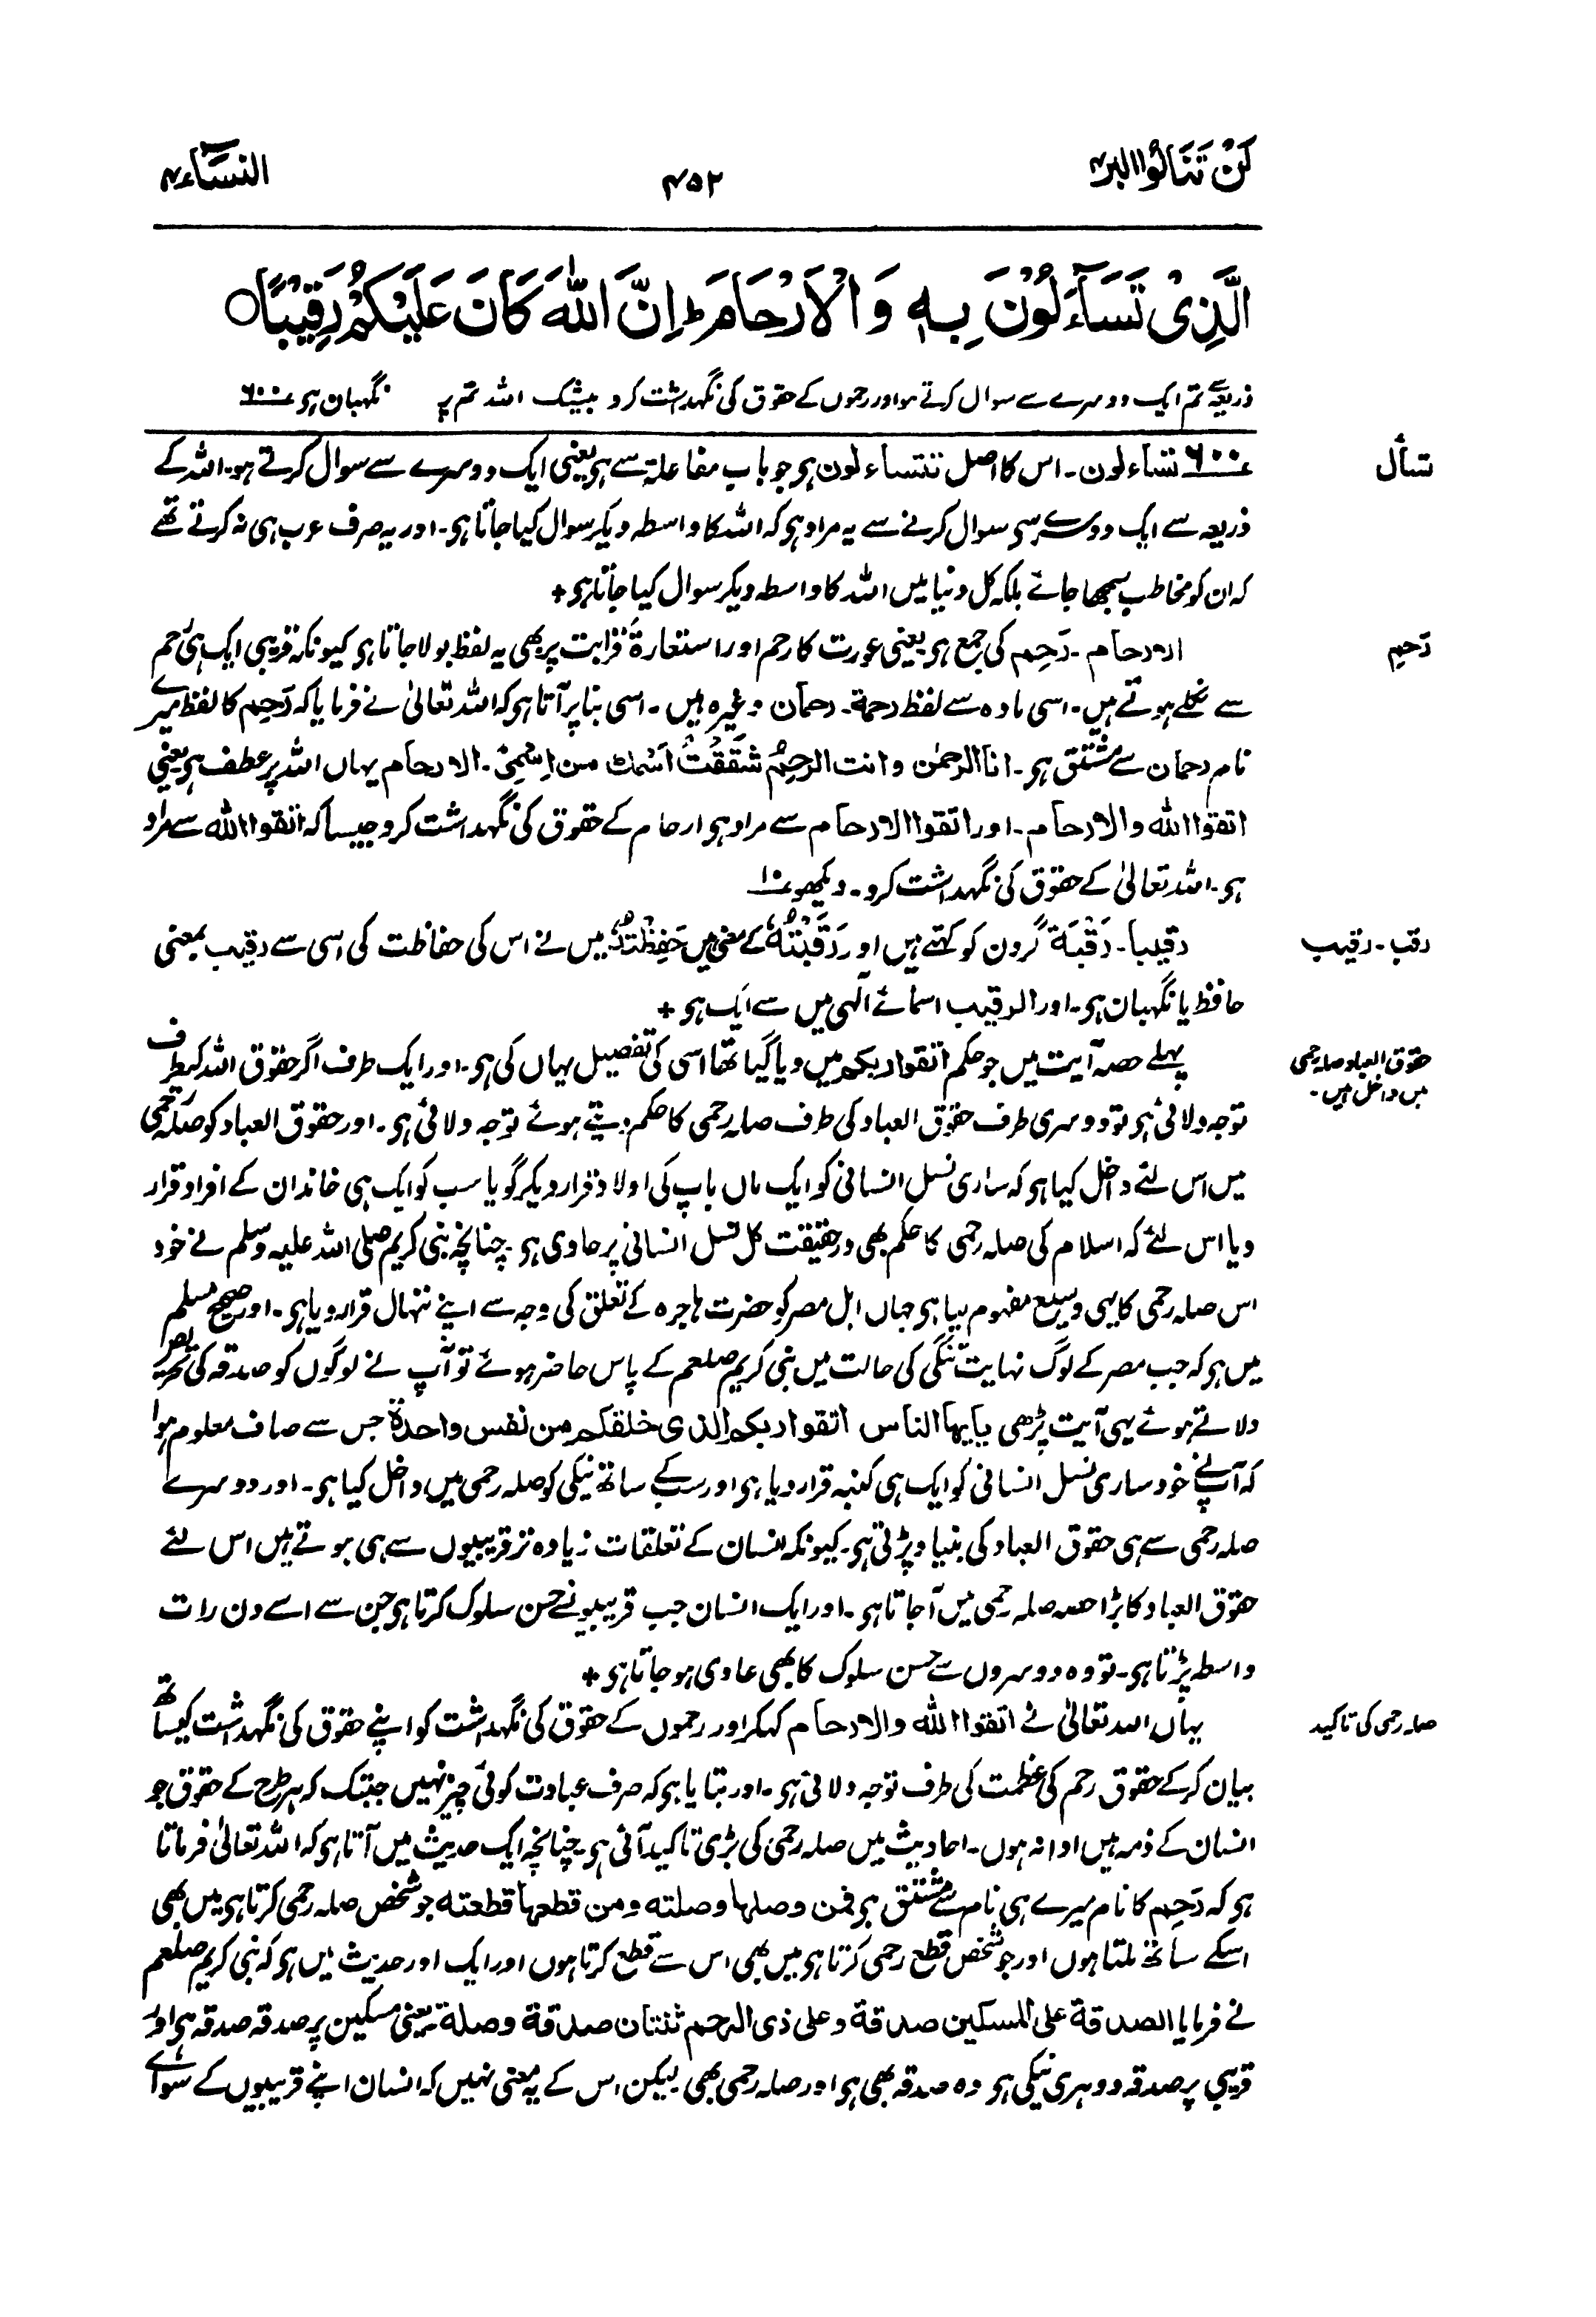 لَنْ تَنَالُوا البر۴
۴۵۲
النسآء۴
الَّذِىْ تَسَآءَلُوْنَ بِهٖ وَ الْاَرْحَامَ ؕ اِنَّ اللّٰهَ كَانَ عَلَيْكُمْ رَقِيْبًا ○
ذریعے تم ایک دوسرے سے سوال کرتے ہو اور رحموں کے حقوق کی نگہداشت کرو بیشک اللہ تم پر نگہبان ہی ۶۰۰
تسأل
۶۰۰ تساءلون۔ اس کا اصل تتساءلون ہی جو باب مفاعلۃ سے ہی یعنی ایک دوسرے سے سوال کرتے ہو۔ اللہ کے
ذریعہ سے ایک دوسرے سی سوال کرنے سے یہ مراد ہی کہ اللہ کا واسطہ دیکر سوال کیا جاتا ہی۔ اور یہ صرف عرب ہی نہ کرتے تھے
کہ ان کو مخاطب سمجھا جائے بلکہ کل دنیا میں اللہ کا واسطہ دیکر سوال کیا جاتا ہی +
رَحِم
الارحام۔ رَحِم کی جمع ہی یعنی عورت کا رحم اور استعارۃً قرابت پر بھی یہ لفظ بولا جاتا ہی کیونکہ قریبی ایک ہی رحم
سے نکلے ہوتے ہیں۔ اسی مادہ سے لفظ رحمة۔ رحمان وغیرہ ہیں۔ اسی بنا پر آتا ہی کہ اللہ تعالیٰ نے فرمایا کہ رَحِم کا لفظ میرے
نام رحمان سے مشتق ہی۔ انا الرحمٰن وانت الرحِمُ شَقَقْتُ اسْمك من اِسْمِیْ۔ الارحام یہاں اللہ پر عطف ہی یعنی
اتقوا اللّٰه والارحام۔ اور اتقوا الارحام سے مراد ہی ارحام کے حقوق کی نگہداشت کرو جیسا کہ اتقوا اللّٰه سے مراد
ہی۔ اللہ تعالیٰ کے حقوق کی نگہداشت کرو۔ دیکھو ۱۰
رقب۔ رقیب
رقیبا۔ رَقْبَة گردن کو کہتے ہیں اور رَقَبْتُهٗ کے معنی ہیں حَفِظْتُهٗ میں نے اس کی حفاظت کی اسی سے رقیب بمعنی
حافظ یا نگہبان ہی۔ اور الرقیب اسمائے الٰہی میں سے ایک ہی +
حقوق العباد صلہ رحمی
میں داخل ہیں۔
پہلے حصہ آیت میں جو حکم اتقوا ربکم میں دیا گیا تھا اسی کی تفصیل یہاں کی ہی۔ اور ایک طرف اگر حقوق اللہ کیطرف
توجہ دلائی ہی تو دوسری طرف حقوق العباد کی طرف صلہ رحمی کا حکم دیتے ہوئے توجہ دلائی ہی۔ اور حقوق العباد کو صلہ رحمی
میں اس لئے داخل کیا ہی کہ ساری نسل انسانی کو ایک ماں باپ کی اولاد قرار دیکر گویا سب کو ایک ہی خاندان کے افراد قرار
دیا اس لئے کہ اسلام کی صلہ رحمی کا حکم بھی درحقیقت کل نسل انسانی پر حاوی ہی۔ چنانچہ نبی کریم صلی اللہ علیہ وسلم نے خود
اس صلہ رحمی کا یہی وسیع مفہوم لیا ہی جہاں اہل مصر کو حضرت ہاجرہ کے تعلق کی وجہ سے اپنے ننہال قرار دیا ہی۔ اور صحیح مسلم
میں ہی کہ جب مصر کے لوگ نہایت تنگی کی حالت میں نبی کریم صلعم کے پاس حاضر ہوئے تو آپ نے لوگوں کو صدقہ کی تحریص
دلاتے ہوئے یہی آیت پڑھی یایها الناس اتقوا ربکم الذی خلقکم من نفس واحدة جس سے صاف معلوم ہوا
کہ آپ نے خود ساری نسل انسانی کو ایک ہی کنبہ قرار دیا ہی اور سب کے ساتھ نیکی کو صلہ رحمی میں داخل کیا ہی۔ اور دوسرے
صلہ رحمی سے ہی حقوق العباد کی بنیاد پڑتی ہی۔ کیونکہ انسان کے تعلقات زیادہ تر قریبیوں سے ہی ہوتے ہیں اس لئے
حقوق العباد کا بڑا حصہ صلہ رحمی میں آجاتا ہی۔ اور ایک انسان جب قریبیوں سے حسن سلوک کرتا ہی جن سے اسے دن رات
واسطہ پڑتا ہی۔ تو وہ دوسروں سے حسن سلوک کا بھی عادی ہو جاتا ہی +
صلہ رحمی کی تاکید
یہاں اللہ تعالیٰ نے اتقوا اللّٰه والارحام کہکر اور رحموں کے حقوق کی نگہداشت کو اپنے حقوق کی نگہداشت کیساتھ
بیان کرکے حقوق رحم کی عظمت کی طرف توجہ دلائی ہی۔ اور بتایا ہی کہ صرف عبادت کوئی چیز نہیں جبتک کہ ہر طرح کے حقوق جو
انسان کے ذمہ ہیں ادا نہ ہوں۔ احادیث میں صلہ رحمی کی بڑی تاکید آئی ہی۔ چنانچہ ایک حدیث میں آتا ہی کہ اللہ تعالیٰ فرماتا
ہی کہ رَحِم کا نام میرے ہی نام سے مشتق ہی فمن وصلها وصلته ومن قطعها قطعته جو شخص صلہ رحمی کرتا ہی میں بھی
اسکے ساتھ ملتا ہوں اور جو شخص قطع رحمی کرتا ہی میں بھی اس سے قطع کرتا ہوں اور ایک اور حدیث میں ہی کہ نبی کریم صلعم
نے فرمایا الصدقة علی المسکین صدقة وعلی ذی الرحم ثنتان صدقة وصلة یعنی مسکین پر صدقہ صدقہ ہی اور
قریبی پر صدقہ دوہری نیکی ہی وہ صدقہ بھی ہی اور صلہ رحمی بھی لیکن اس کے یہ معنی نہیں کہ انسان اپنے قریبیوں کے سوائے